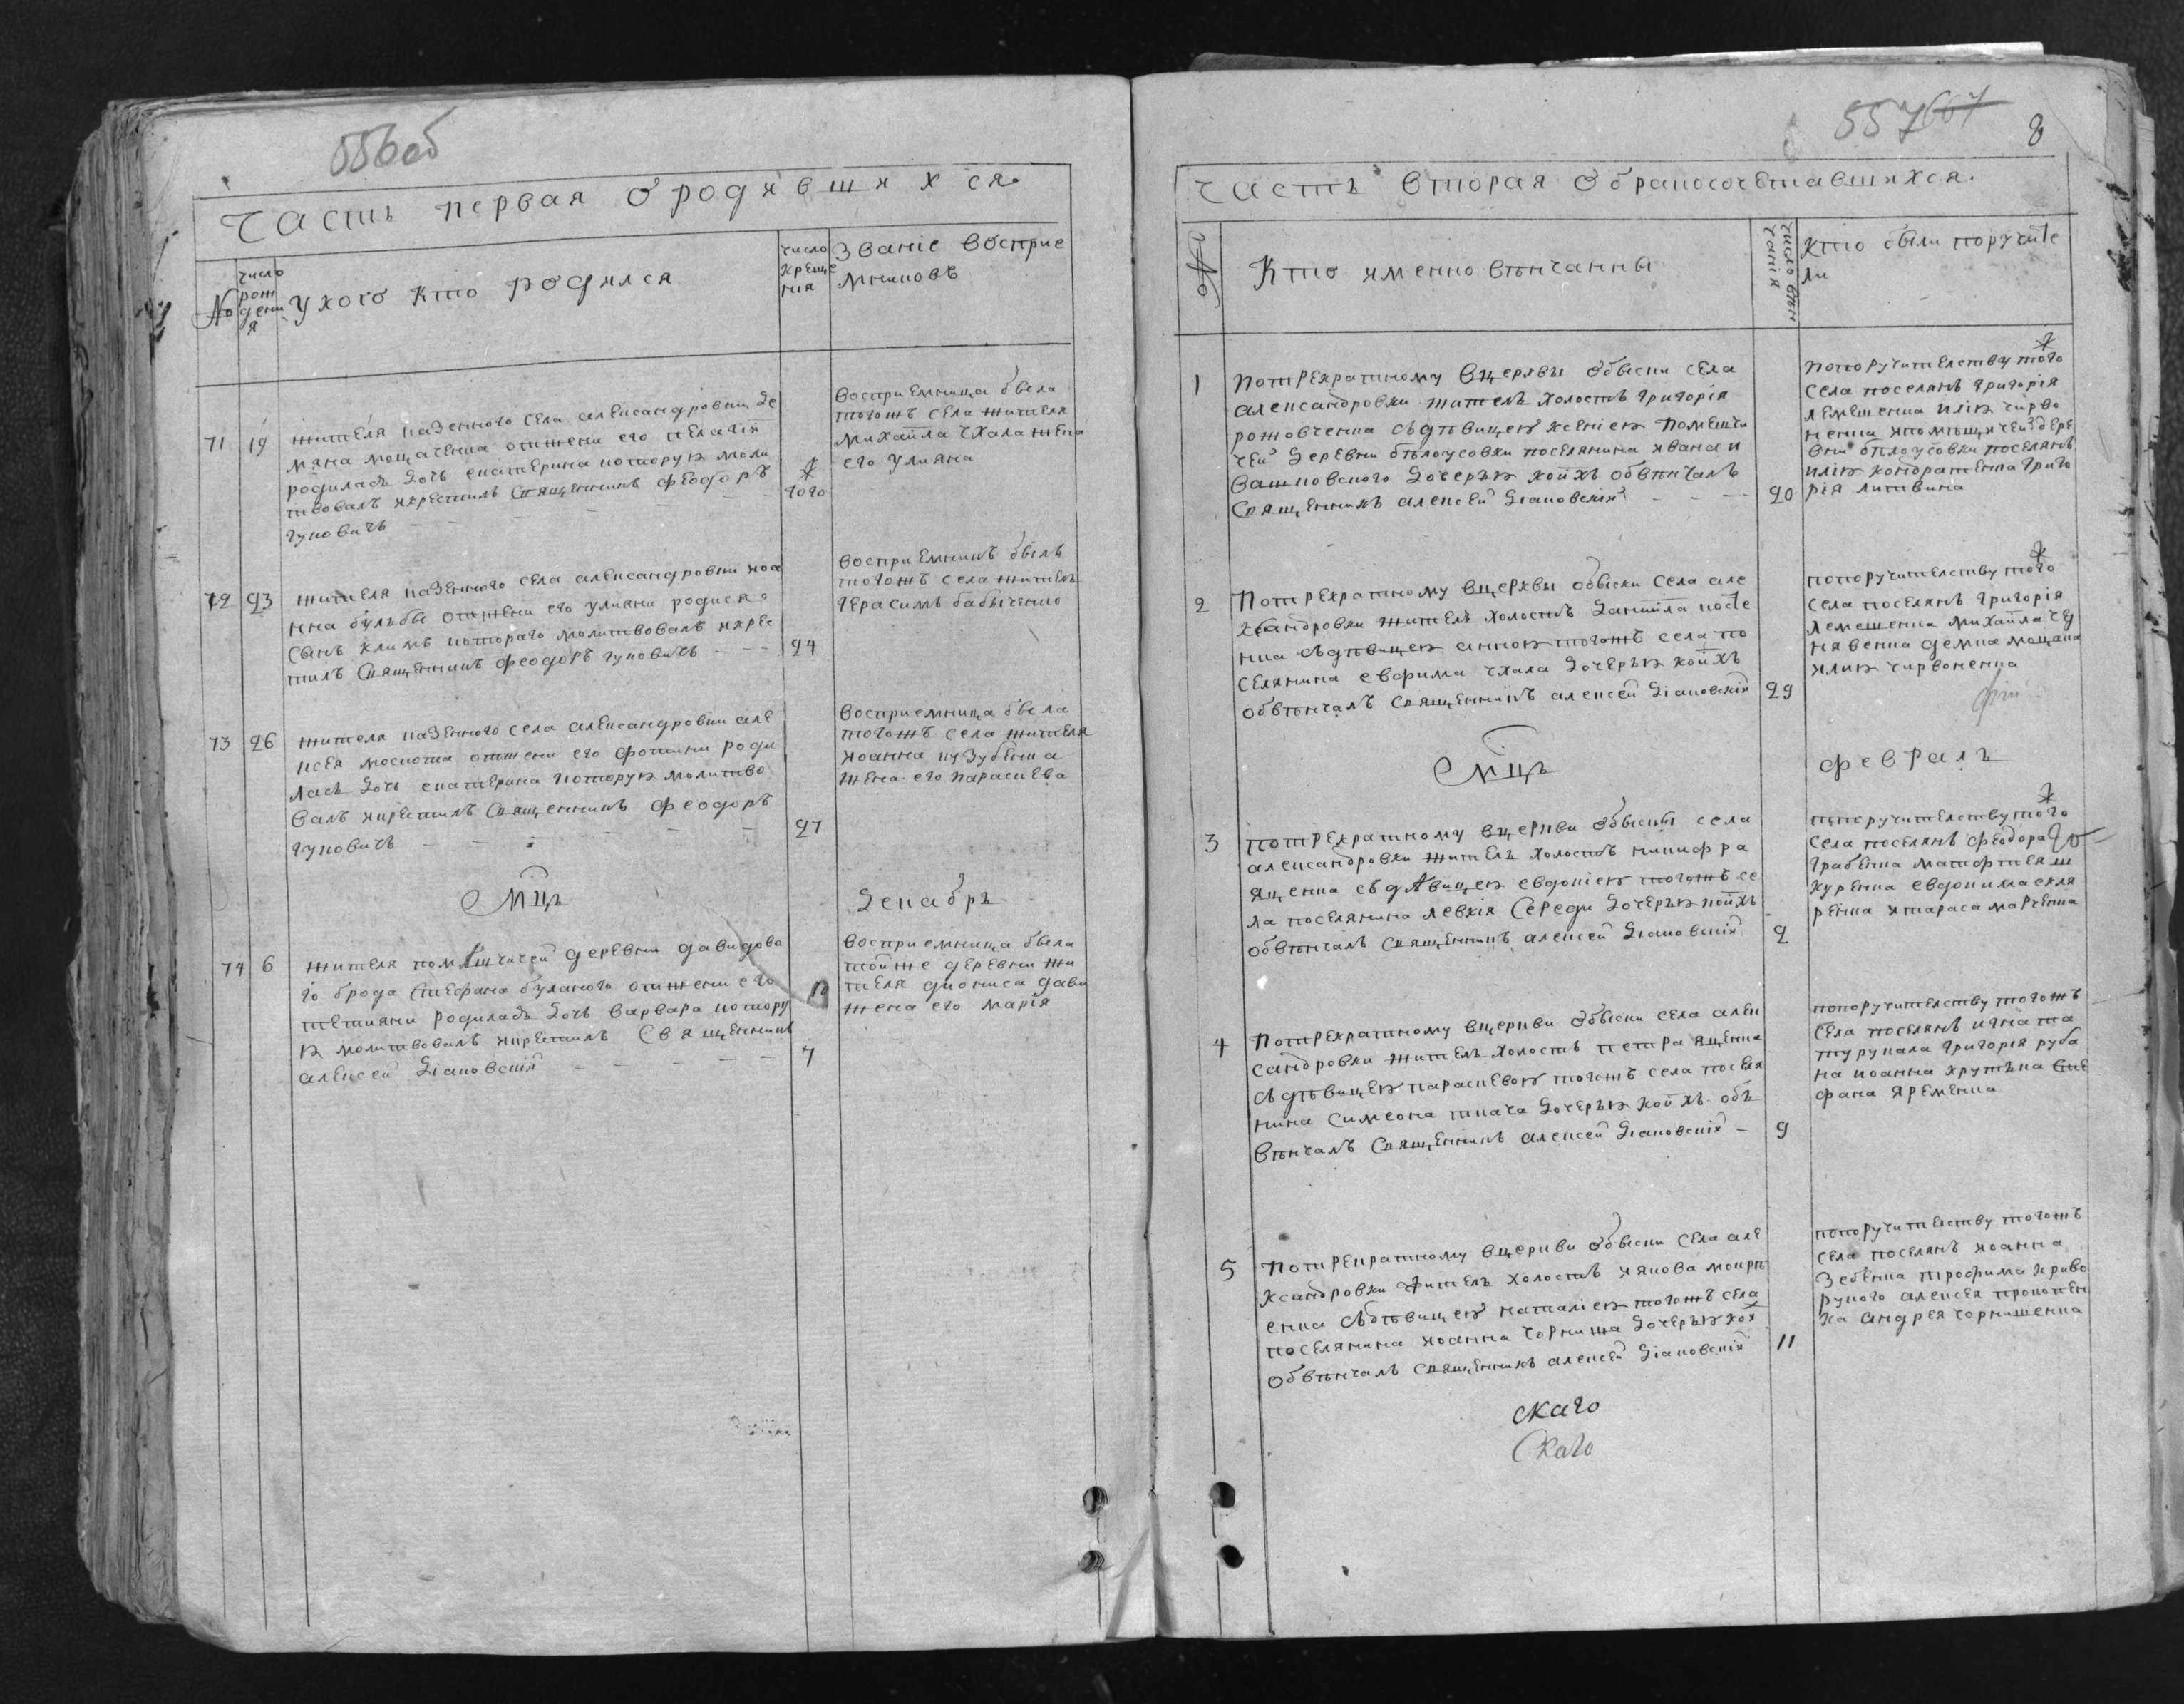 556об
Часть первая О родившихся
№
число рождения
У кого кто родился
число крещения
Званіе восприемниковъ
71
19
жителя казенного села александровки де
мяна мощаченка отжени его пелагіи
родилась дочь екатерина которую моли
твовалъ икрестилъ Священникъ феодоръ
гуковичъ
2020
Восприемница была
тогожъ села жителя
михайла чхала жена
его улияна
72
23
жителя казенного села александровки иоа
нна бульбы отжени его улияни родися
Сынъ климъ котораго молитвовалъ икрес
тилъ Священникъ феодоръ гуковичъ
24
восприемникъ былъ
тогожъ села житель
герасимъ бабыченко
73
26
жителя казенного села александровки але
ксея москота отжени его фотини роди
лась дочь екатерина которую молитво
валъ икрестилъ Священникъ феодоръ
гуковичъ
27
восприемница была
тогожъ села жителя
иоанна кузубенка
жена его параскева
Мцъ
декабрь
74
6
жителя помѣщичей деревни давидово
го брода Стефана буланого отжени его
татияни родилась дочь варвара котору
ю молитвовалъ икрестилъ Священникъ
алексей діяковскій
7
восприемница была
тойже деревни жи
теля диониса дави
жена его марія
557
8
Часть вторая Обракосочетавшихся.
№
Кто именно вѣнчанны
число вѣнчанія
кто были поручите
ли
1
Потрехратному вцерквы обыски села
александровки житель холостъ григорія
рожовченка съдѣвицею ксеніею помещи
чей деревни бѣлоусовки поселянина ивана и
вашковского дочерью коихъ обвѣнчалъ
Священникъ алексей діяковскій
20
попоручителству того
села поселянъ григорія
лемешенка иліи чирво
ненка ипомѣщичей дере
вни бѣлоусовки поселянъ
иліи кондратенка григо
рія литвина
2
Потрехратному вцерквы обыски села але
ксандровки житель холостъ даниила носе
нка съдѣвицею анною тогожъ села по
селянина евфима чхала дочерью коихъ
обвѣнчалъ Священникъ алексей діяковскій
29
попоручителству того
села поселянъ григорія
лемешенка михайла чер
нявенка демка мощака
илии чирвоненка
Мцъ
февраль
3
потрехратному вцеркви обыски села
александровки житель холостъ никифра
яценка съдѣвицею евдокіею тогожъ се
ла поселянина левкія Середи дочерью коихъ
обвѣнчалъ Священникъ алексей діяковскій
2
попоручителству того
села поселянъ феодора
грабенка матфтея ш
куренка евдокима скля
ренка итараса марченка
4
Потрехратному вцеркви обыски села алек
сандровки житель холостъ петра яценка
съдѣвицею параскевою тогожъ села поселя
нина Симеона ткача дочерью коихъ объ
вѣнчалъ Священникъ алексей діяковскій
9
попоручителству тогожъ
села поселянъ игната
турукала григорія руба
на иоанна хрутька сте
фана яременка
5
Потрехратному вцеркви обыски села але
ксандровки житель холостъ иякова мокри
енка съдѣвицею наталіею тогожъ села
поселянина иоанна чорниша дочерью коих
обвѣнчалъ священникъ алексей діяковскій
11
попоручителству тогожъ
села поселянъ иоанна
зебенка трофима криво
рукого алексея прокопен
ка андрея чорнишенка
скаго
скаго